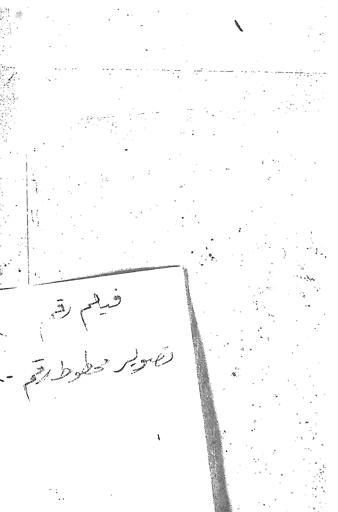 فيلم رقم
تصوير مخطوط رقم